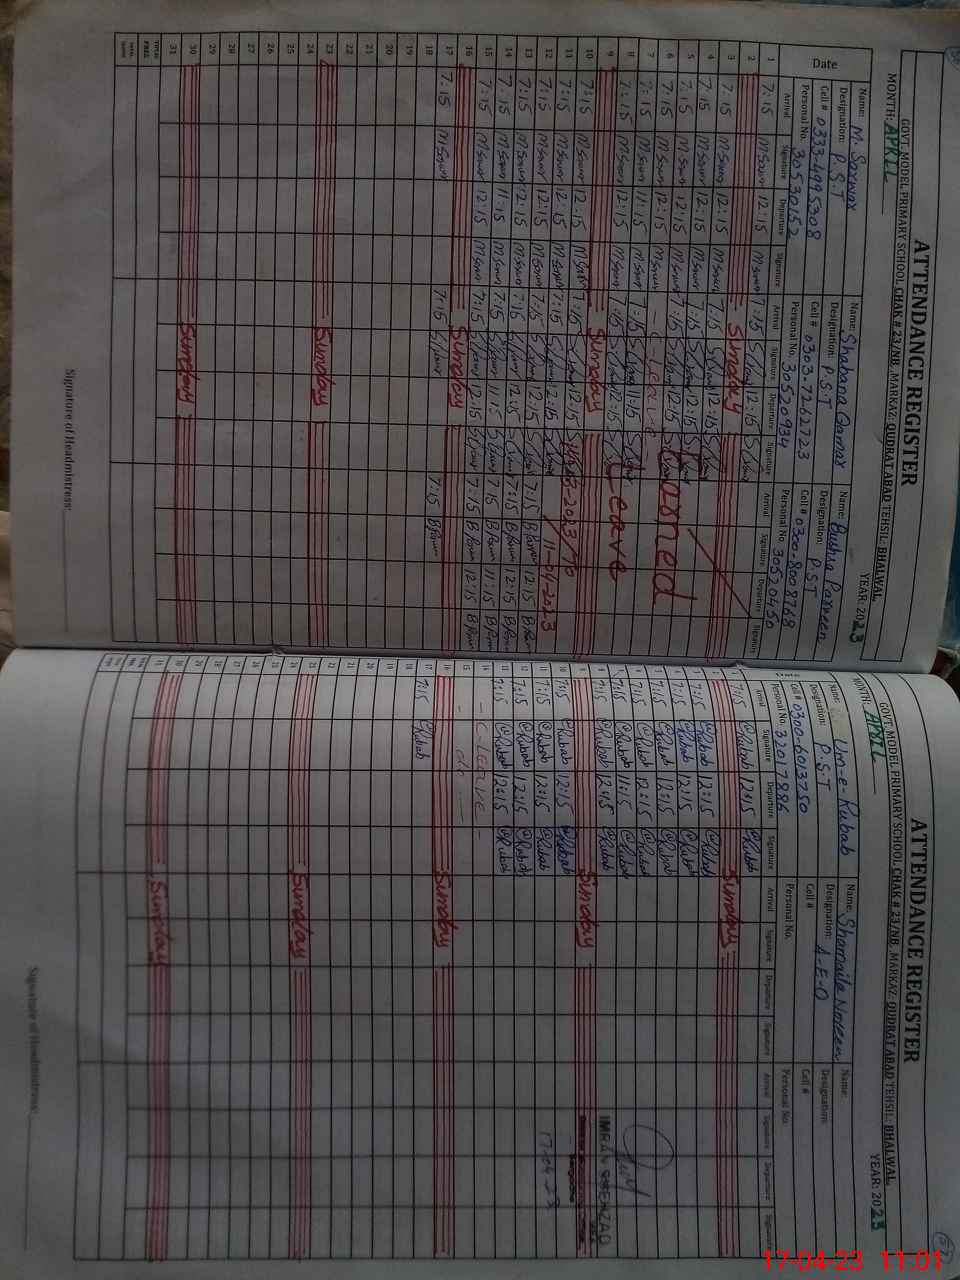 ATTENDANCE REGISTER
GOVT. MODEL PRIMARY SCHOOL CHAK # 23/NB, MARKAZ: QUDRAT ABAD TEHSIL: BHALWAL
MONTH: APRIL YEAR: 2023
Name: M. Sarwar Name: Shabana Qamar Name: Bushra Parveen
Designation: P.S.T Designation: P.S.T Designation: P.S.T
Cell # 0333-4995308 Cell # 0303-7262723 Cell # 0300-8008768
Personal No. 30530152 Personal No. 30520934 Personal No. 30520450
Date Arrival Signature Departure Signature Arrival Signature Departure Signature Arrival Signature Departure Signature
1 7:15 M Sarwar 12:15 M Sarwar 7:15 12:15
2 Sunday
3 7:15 M Sarwar 12:15 M Sarwar 7:15 12:15
4 7:15 M Sarwar 12:15 M Sarwar 7:15 12:15
5 7:15 M Sarwar 12:15 M Sarwar 7:15 12:15
6 7:15 M Sarwar 12:15 M Sarwar - C-Leave -
7 7:15 M Sarwar 11:15 M Sarwar 7:15 11:15
8 7:15 M Sarwar 12:15 M Sarwar 7:15 12:15
Earned Leave
9 Sunday
10 7:15 M Sarwar 12:15 M Sarwar 7:15 12:15
-03-2023 To 11-04-2023
11 7:15 M Sarwar 12:15 M Sarwar 7:15 12:15
12 7:15 M Sarwar 12:15 M Sarwar 7:15 12:15 7:15 12:15
13 7:15 M Sarwar 12:15 M Sarwar 7:15 12:15 7:15 12:15
14 7:15 M Sarwar 11:15 M Sarwar 7:15 11:15 7:15 11:15
15 7:15 M Sarwar 12:15 M Sarwar 7:15 12:15 7:15 12:15
16 Sunday
17 7:15 M Sarwar 7:15 7:15
18
19
20
21
22
23 Sunday
24
25
26
27
28
29
30 Sunday
31
TOTAL
FREE
Signature of Headmistress:
ATTENDANCE REGISTER
GOVT. MODEL PRIMARY SCHOOL CHAK # 23/NB, MARKAZ: QUDRAT ABAD TEHSIL: BHALWAL
MONTH: APRIL YEAR: 2023
Name: Um-e-Rubab Name: Shamaila Noreen Name:
Designation: P.S.T Designation: A-E-O Designation:
Cell # 0300-6013750 Cell # Cell #
Personal No. 32017886 Personal No. Personal No.
Date Arrival Signature Departure Signature Arrival Signature Departure Signature Arrival Signature Departure Signature
1 7:15 Rubab 12:15 Rubab
2 Sunday
3 7:15 Rubab 12:15 Rubab
4 7:15 Rubab 12:15 Rubab
5 7:15 Rubab 12:15 Rubab
6 7:15 Rubab 12:15 Rubab
7 7:15 Rubab 11:15 Rubab
8 7:15 Rubab 12:15 Rubab
IMRAN SHEHZAD
9 Sunday
10 7:15 Rubab 12:15 Rubab
11 7:15 Rubab 12:15 Rubab
17-04-23
12 7:15 Rubab 12:15 Rubab
13 7:15 Rubab 12:15 Rubab
14 - C-Leave -
15 - do -
16 Sunday
17 7:15 Rubab
18
19
20
21
22
23 Sunday
24
25
26
27
28
29
30 Sunday
31
Signature of Headmistress:
57
17-04-23 11:01